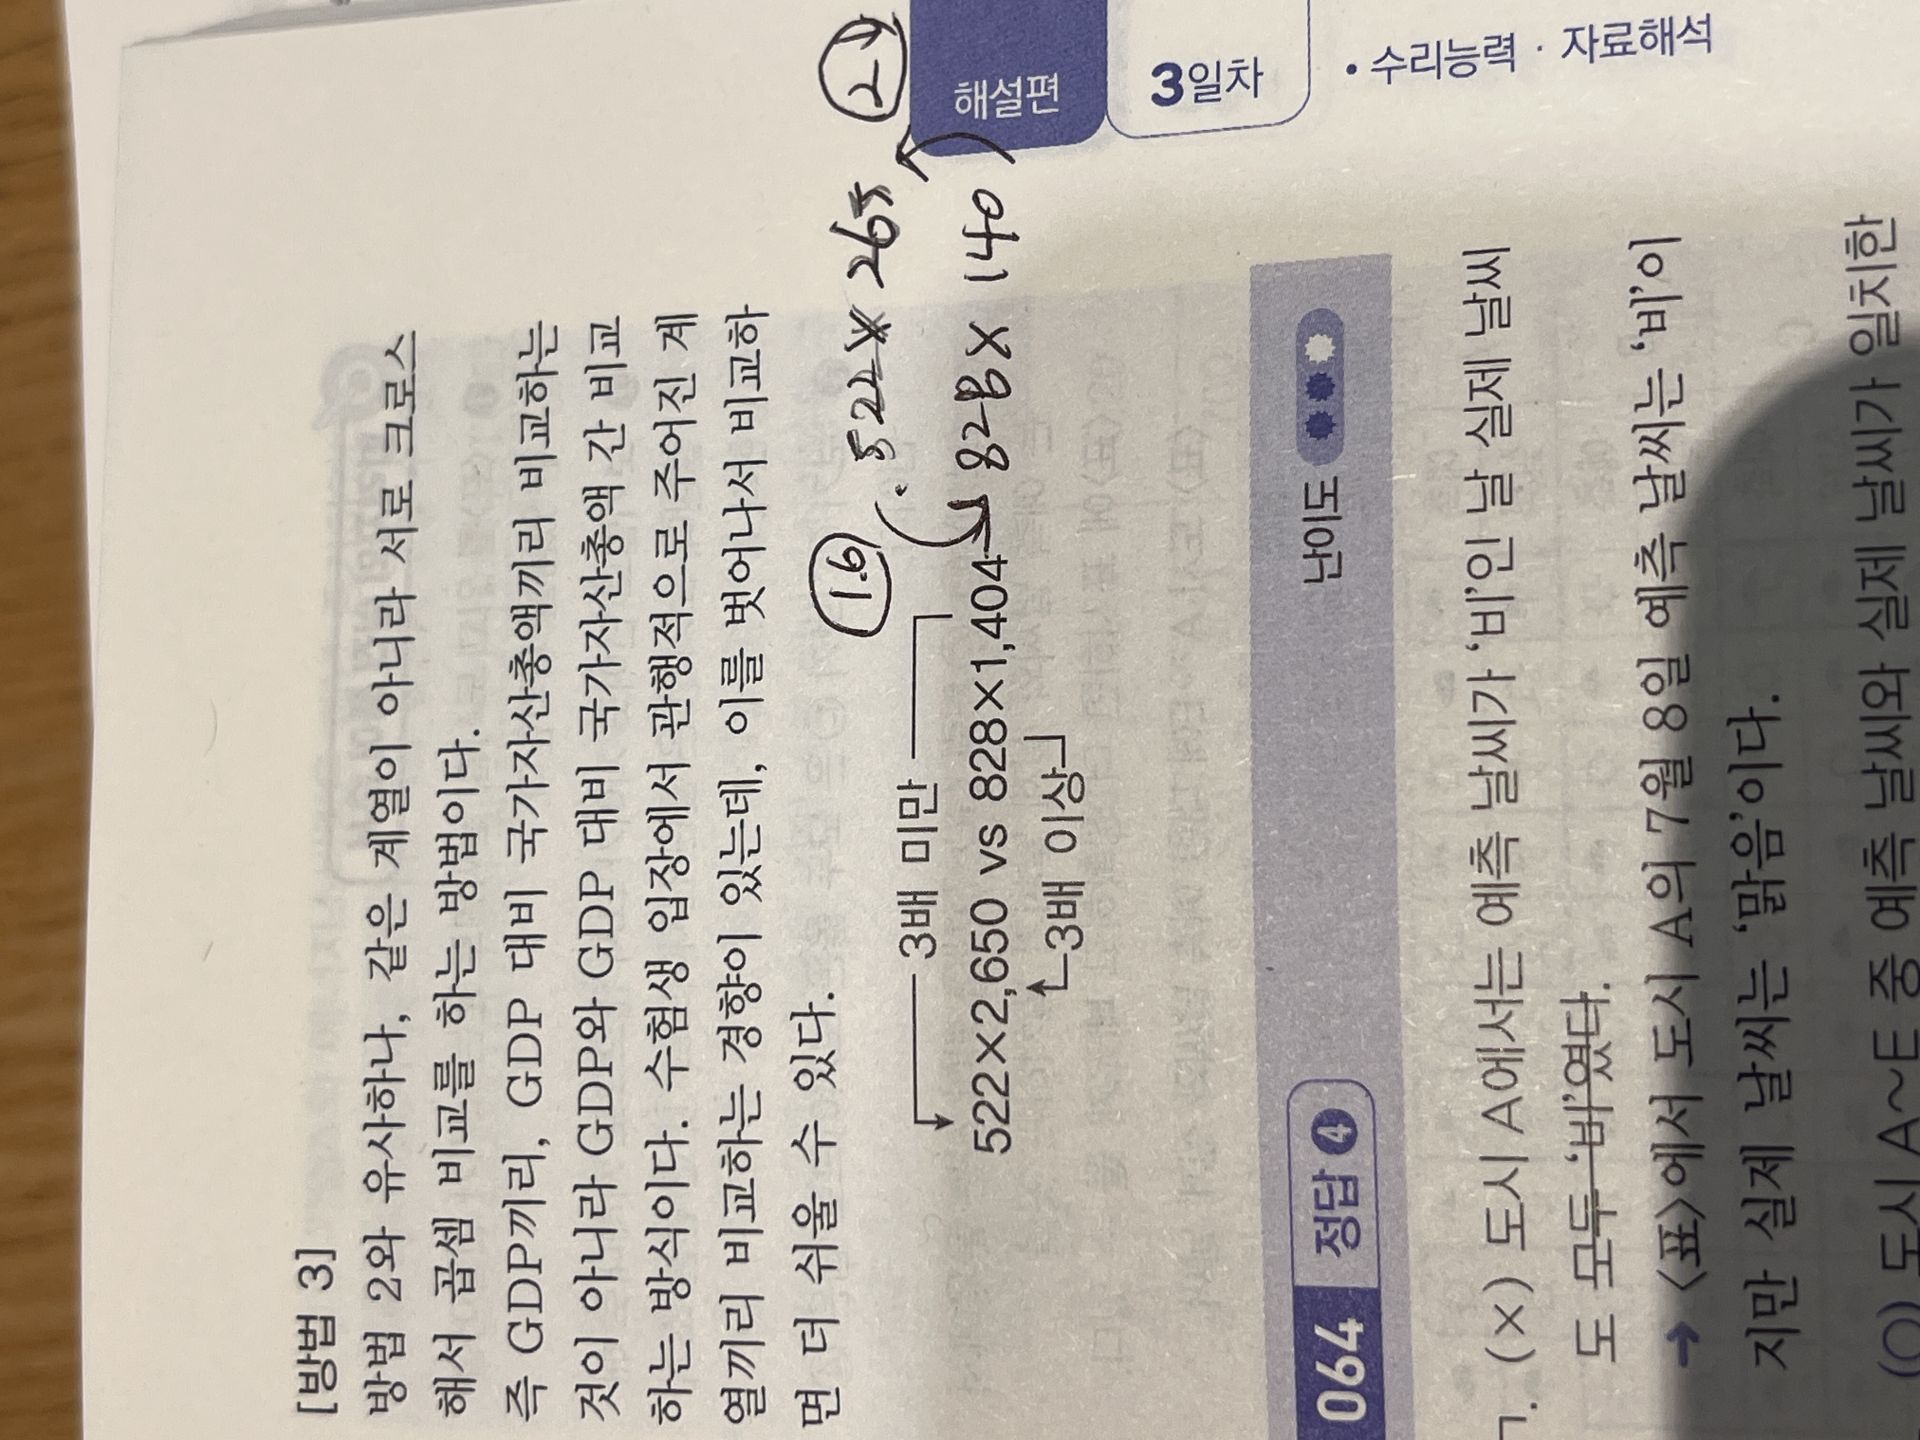 해설편
3일차
• 수리능력 · 자료해석
[방법 3]
방법 2와 유사하나, 같은 계열이 아니라 서로 크로스
해서 곱셈 비교를 하는 방법이다.
즉 GDP끼리, GDP 대비 국가자산총액끼리 비교하는
것이 아니라 GDP와 GDP 대비 국가자산총액 간 비교
하는 방식이다. 수험생 입장에서 관행적으로 주어진 계
열끼리 비교하는 경향이 있는데, 이를 벗어나서 비교하
면 더 쉬울 수 있다.
1.6
522 × 265
828 × 140
3배 미만
522×2,650 vs 828×1,404
3배 이상
064 정답 ④ 난이도
ㄱ. (×) 도시 A에서는 예측 날씨가 ‘비’인 날 실제 날씨
도 모두 ‘비’였다.
➔ 〈표〉에서 도시 A의 7월 8일 예측 날씨는 ‘비’이
지만 실제 날씨는 ‘맑음’이다.
(○) 도시 A~E 중 예측 날씨와 실제 날씨가 일치한